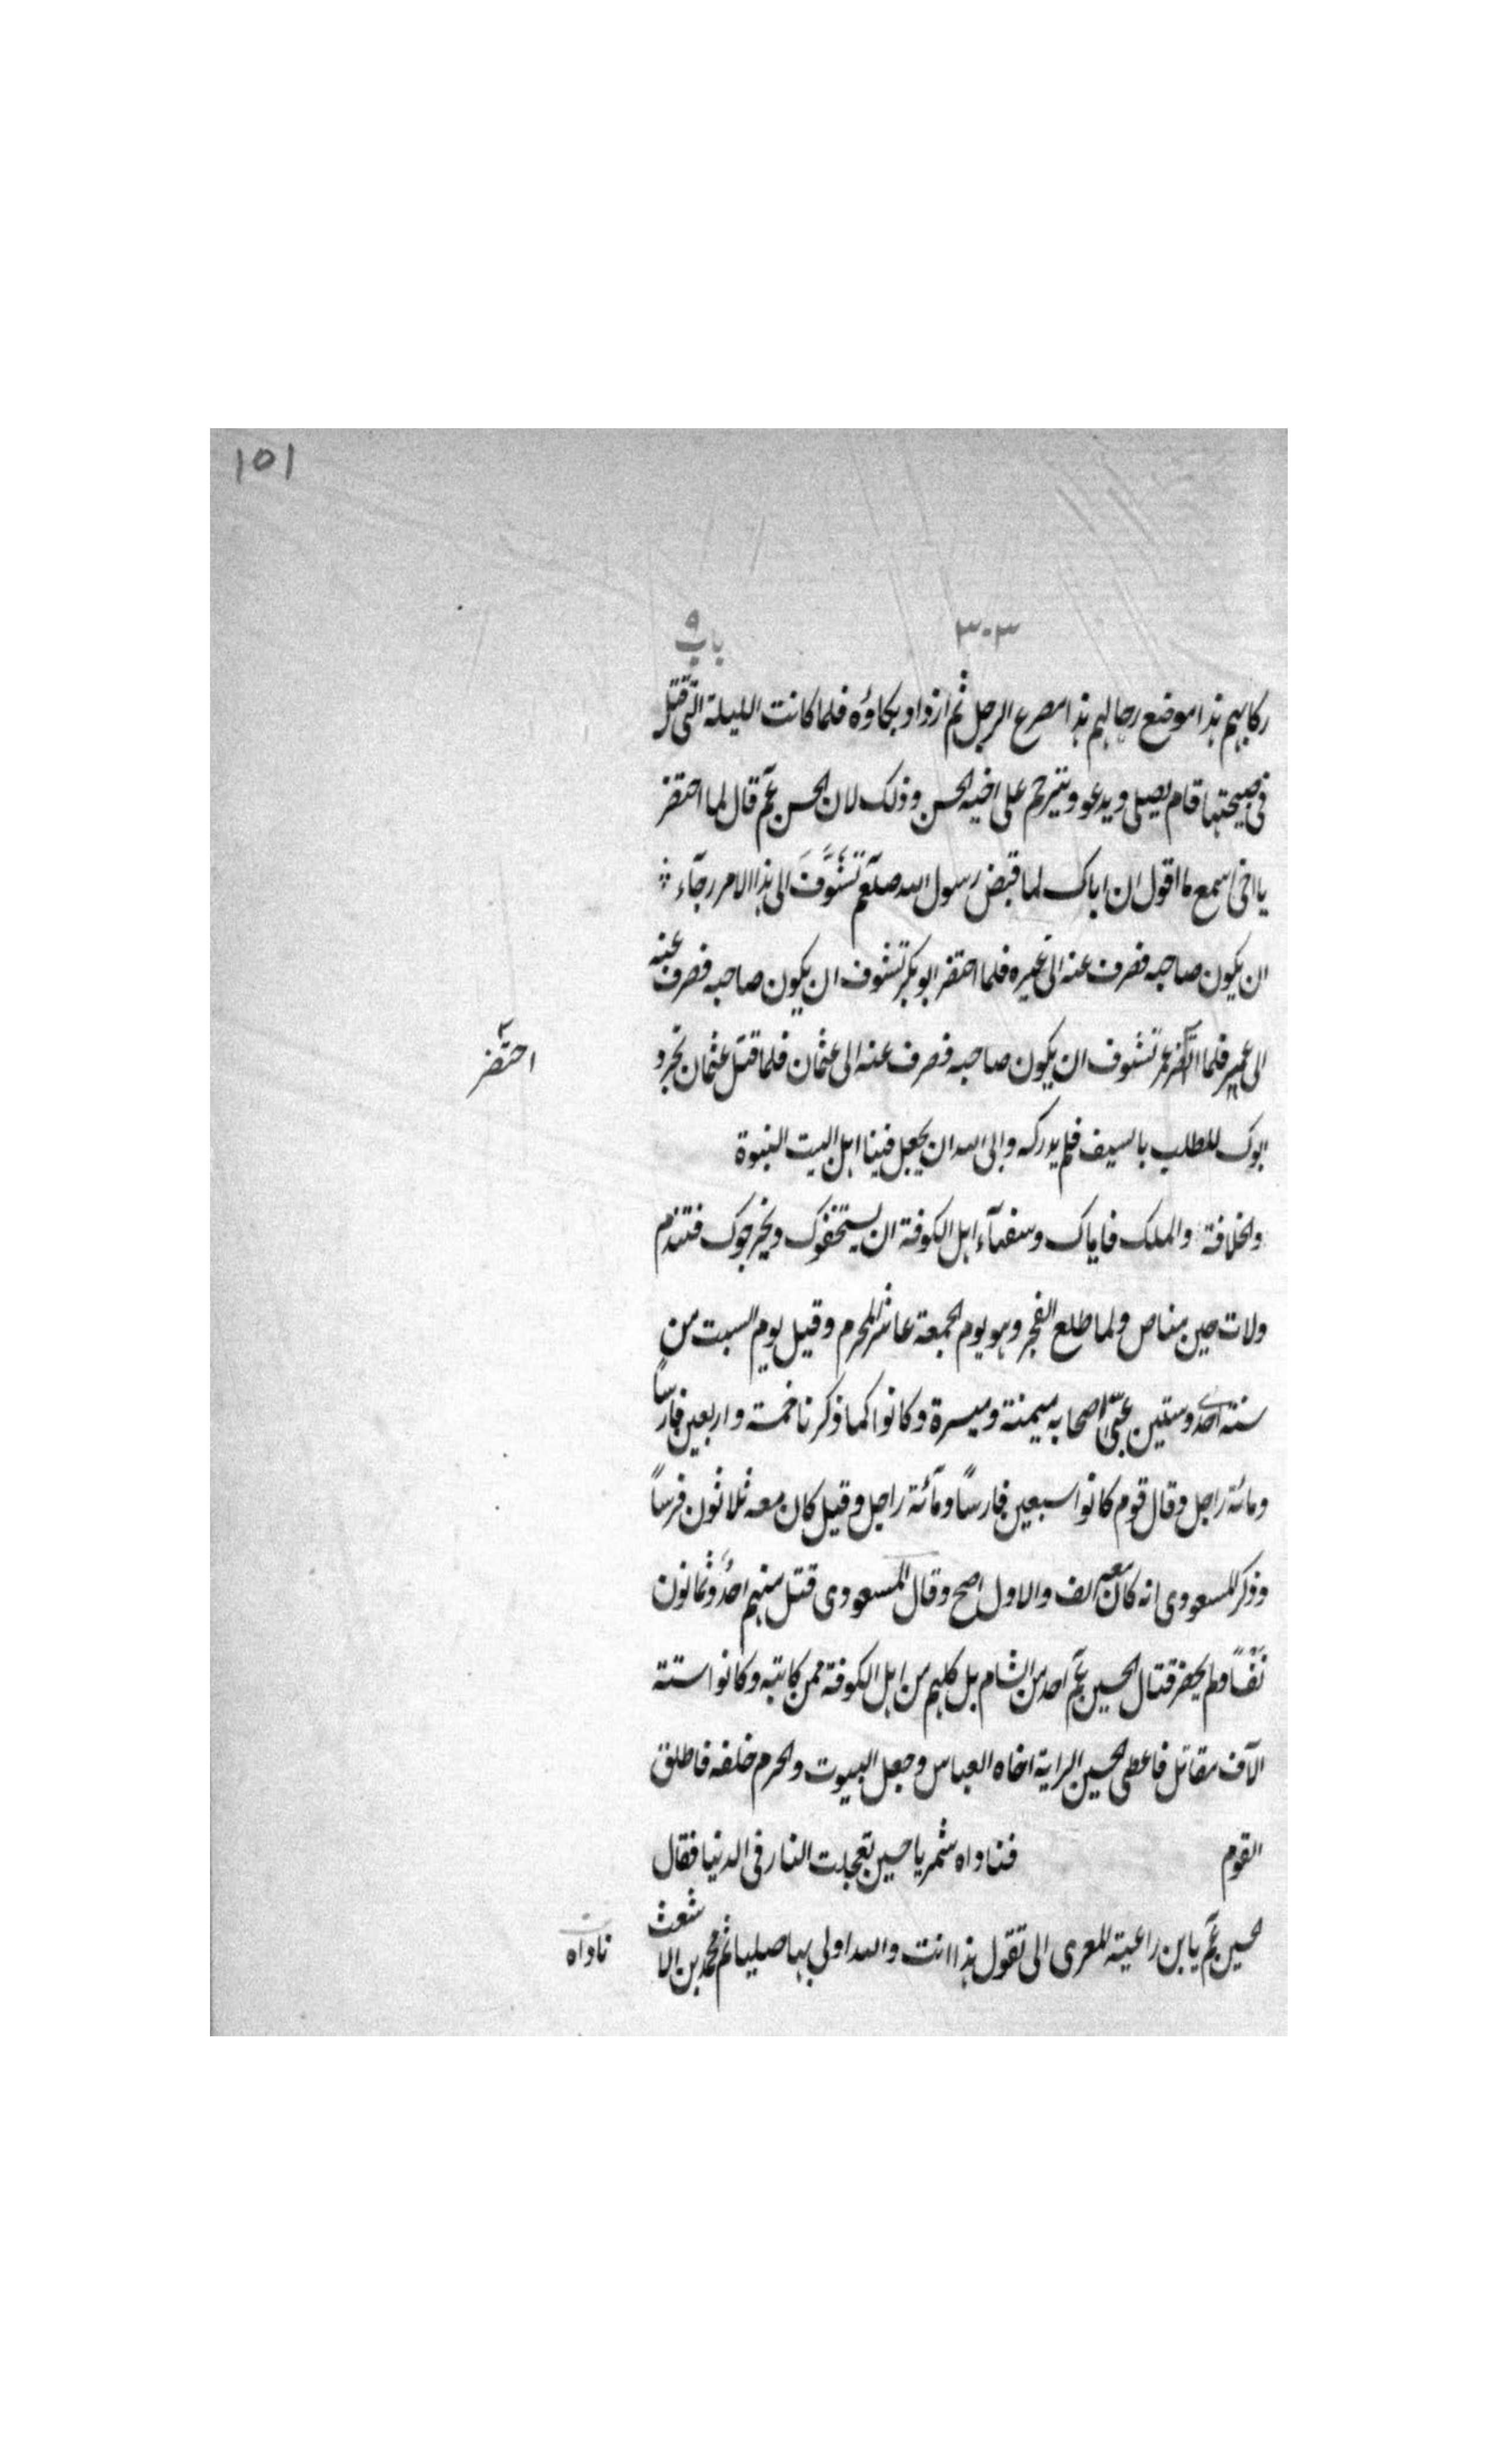 ١٥١
٣٠٣ باب ٩
ركابهم هذا موضع رحالهم هذا مصرع الرجل ثم ازداد بكاؤه فلما كانت الليلة التى قتل
فى صبيحتها قام يصلى ويدعو ويترحم على اخيه الحسن وذلك لان الحسن عم قال لما احتضر
يا اخى اسمع ما اقول ان اباك لما قبض رسول الله صلعم تشوف الى هذا الامر رجآء
ان يكون صاحبه فصرف عنه الى غيره فلما احتضر ابو بكر تشوف ان يكون صاحبه فصرف عنه
الى عمر فلما عمر تشوف ان يكون صاحبه فصرف عنه الى عثمان فلما قتل عثمان تجرد
احتضر
ابوك للطلب بالسيف فلم يدركه وابى الله ان يجعل فينا اهل البيت النبوة
والخلافة والملك فاياك وسفهآء اهل الكوفة ان يستخفوك ويخرجوك فتندم
ولات حين مناص ولما طلع الفجر وهو يوم الجمعة عاشر المحرم وقيل يوم السبت من
سنة احدى وستين عبّى اصحابه ميمنة وميسرة وكانوا كما ذكرنا خمسة واربعين فارساً
ومائة راجل وقال قوم كانوا سبعين فارساً ومآئة راجل وقيل كان معه ثلاثون فرساً
وذكر المسعودى انه كان معه الف والاول اصح وقال المسعودى قتل منهم احدٌ وثمانون
نفساً ولم يحضر قتال الحسين عم احد من الشام بل كلهم من اهل الكوفة ممن كاتبه وكانوا ستة
الآف مقاتل فاعطى الحسين الراية اخاه العباس وجعل البيوت والحرم خلفه فاطلق
القوم فناداه شمر يا حسين تعجلت النار فى الدنيا فقال
الحسين عم يا بن راعية المعزى الى تقول هذا انت والله اولى بها صليا ثم محمد بن الاشعث
ناداه